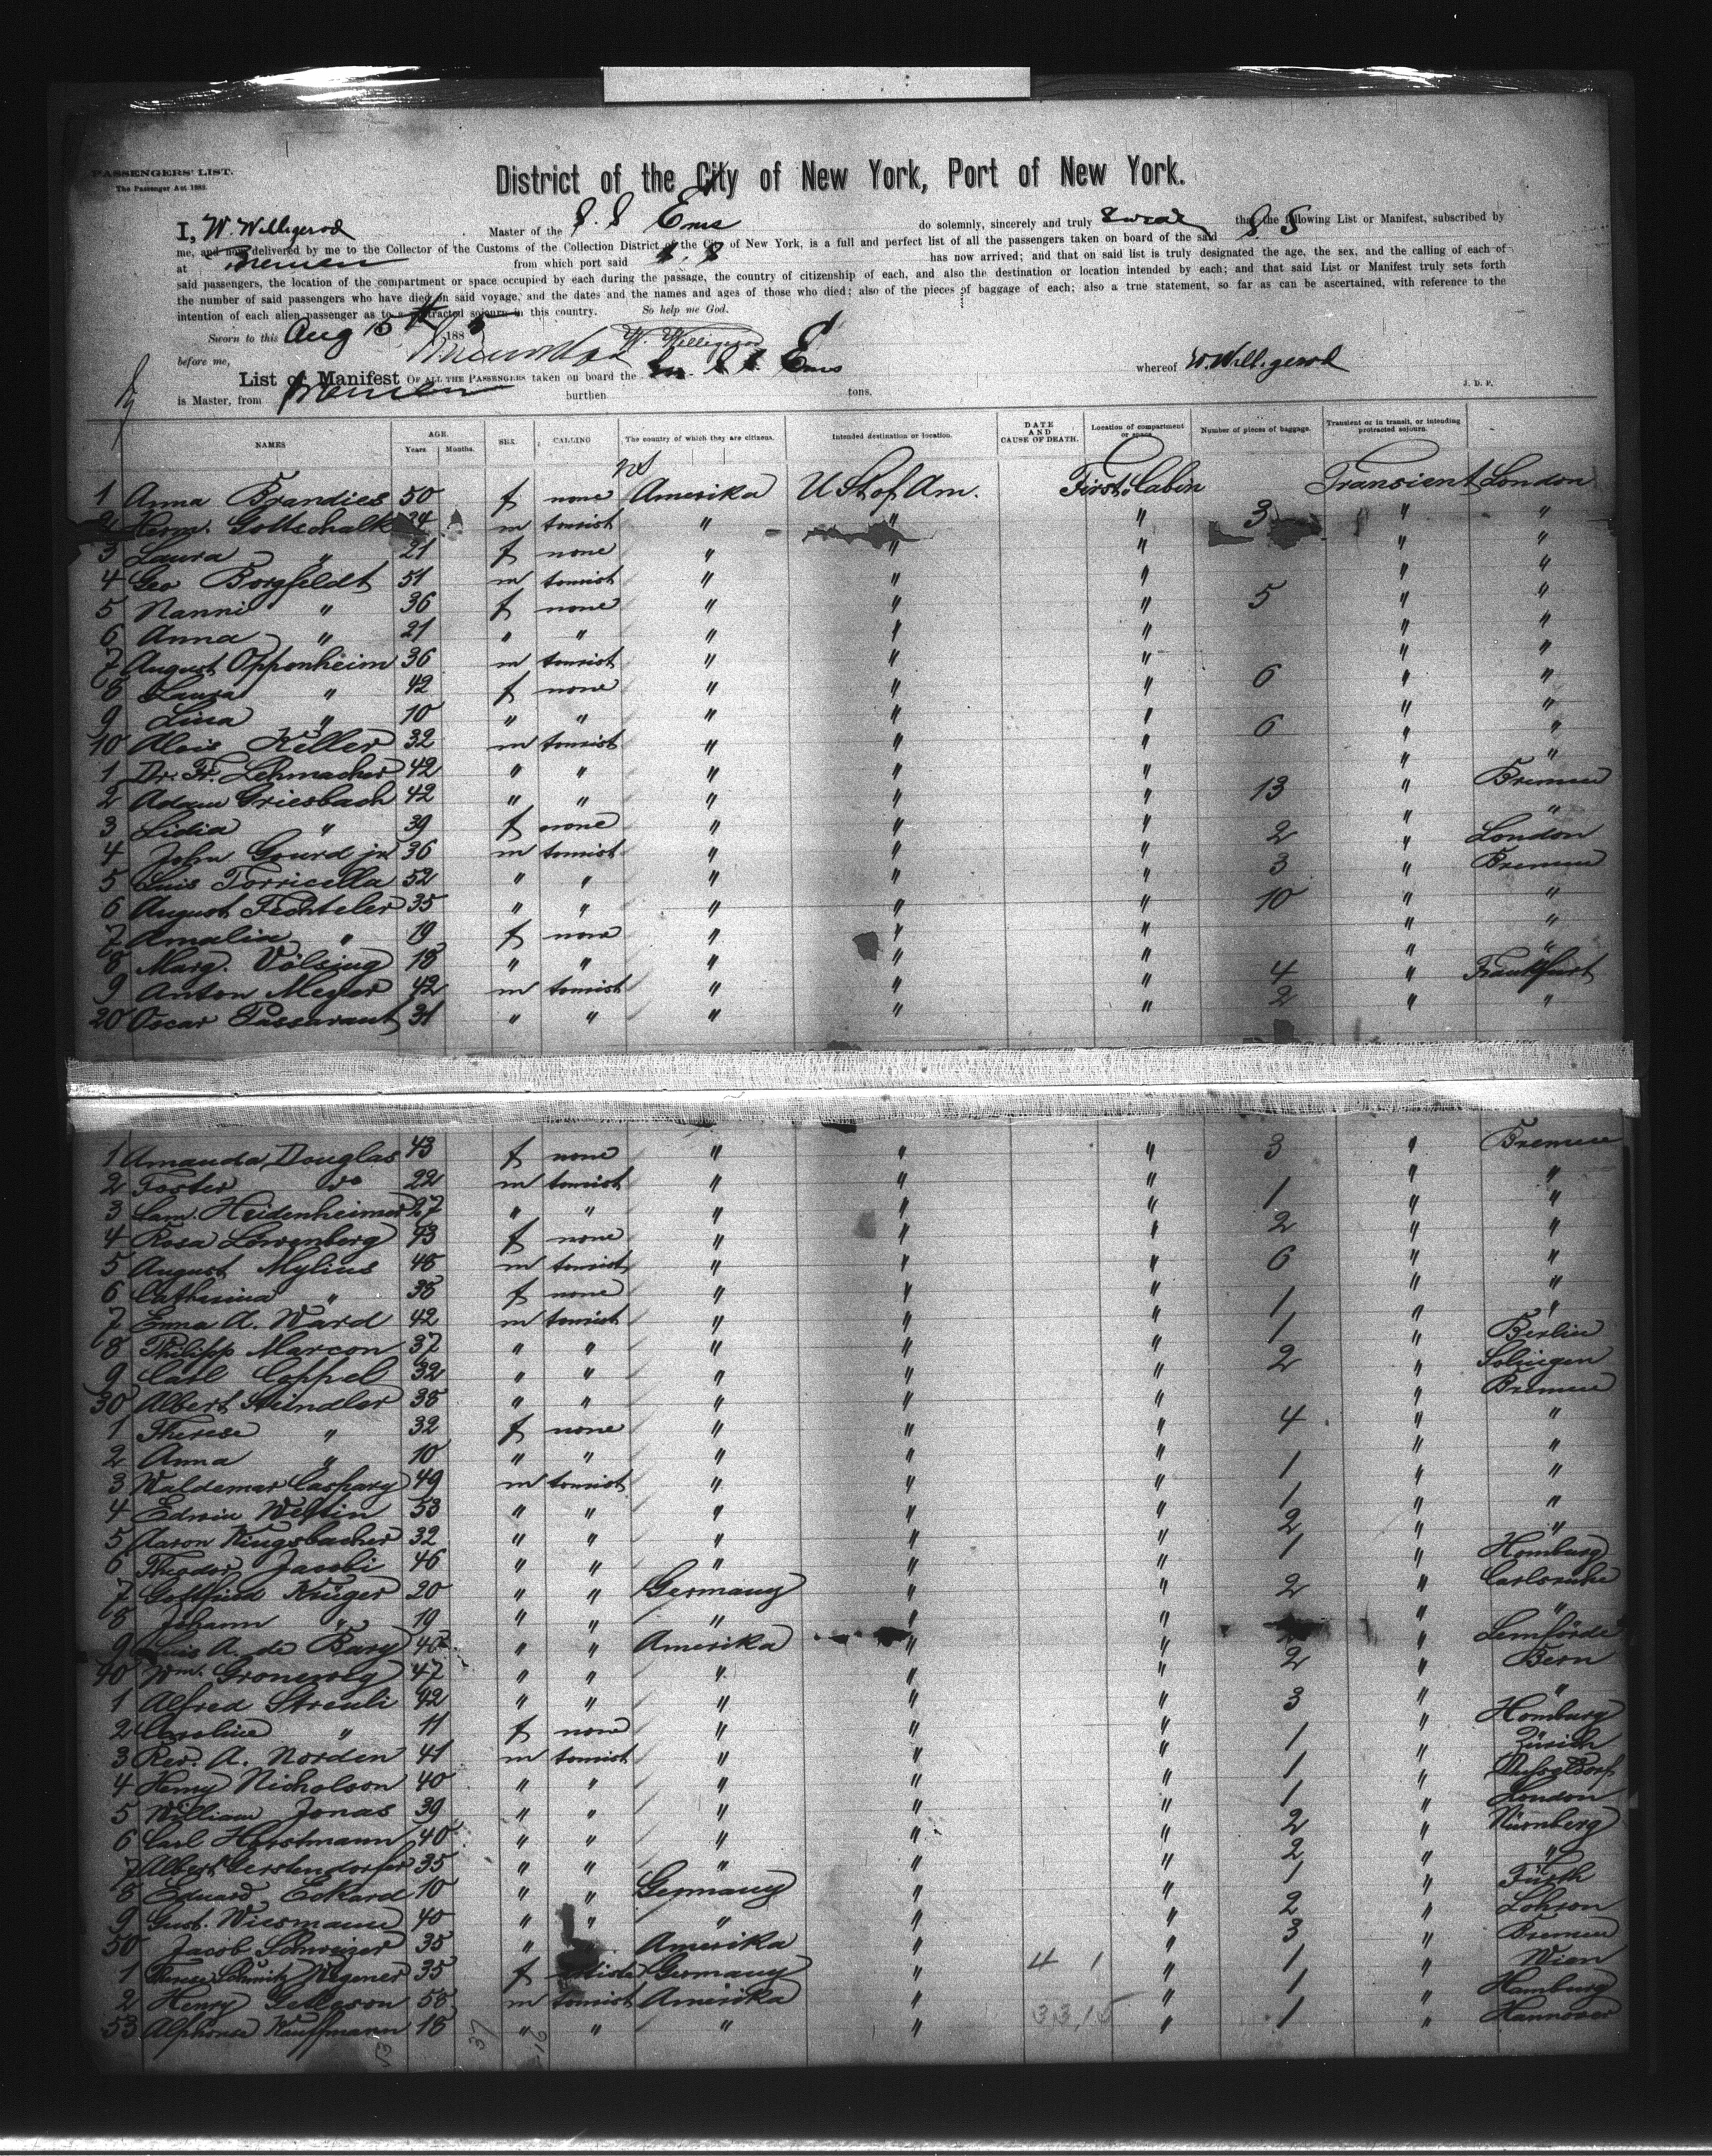 PASSENGERS' LIST.
The Passenger Act 1882.
District of the City of New York, Port of New York.
I, W. Willigerod Master of the S. S Ems do solemnly, sincerely and truly swear that the following List or Manifest, subscribed by
me, and now delivered by me to the Collector of the Customs of the Collection District of the City of New York, is a full and perfect list of all the passengers taken on board of the said S S
at Bremen from which port said S. S has now arrived; and that on said list is truly designated the age, the sex, and the calling of each of
said passengers, the location of the compartment or space occupied by each during the passage, the country of citizenship of each, and also the destination or location intended by each; and that said List or Manifest truly sets forth
the number of said passengers who have died on said voyage, and the dates and the names and ages of those who died; also of the pieces of baggage of each; also a true statement, so far as can be ascertained, with reference to the
intention of each alien passenger as to a protracted sojourn in this country. So help me God.
Sworn to this Aug 15th 1885 W. Willigerod
before me,
List or Manifest OF ALL THE PASSENGERS taken on board the S S Ems whereof W. Willigerod
is Master, from Bremen burthen tons. J. D. F.
NAMES AGE. Years Months. SEX. CALLING The country of which they are citizens. Intended destination or location. DATE AND CAUSE OF DEATH. Location of compartment or space Number of pieces of baggage. Transient or in transit, or intending protracted sojourn.
1 Anna Brandies 50 f none Amerika U St of Am. First Cabin Transient London
2 Herm. Gottschalk 34 m tourist " " " 3 " "
3 Laura " 21 f none " " " " "
4 Geo Borgfeldt 51 m tourist " " " " "
5 Nanni " 36 f none " " " 5 " "
6 Anna " 21 " " " " " " "
7 August Oppenheim 36 m tourist " " " " "
8 Laura " 42 f none " " " 6 " "
9 Lina " 10 " " " " " " "
10 Alois Keller 32 m tourist " " " 6 " "
1 Dr. Fr. Lehmacher 42 " " " " " " "
2 Adam Griesbach 42 " " " " " 13 " Bremen
3 Lidia " 39 f none " " " " "
4 John Gourd jr 36 m tourist " " " 2 " London
5 Luis Torricella 52 " " " " " 3 " Bremen
6 August Fechteler 35 " " " " " 10 " "
7 Amalia " 19 f none " " " " "
8 Marg. Völsing 18 " " " " " " "
9 Anton Meyer 42 m tourist " " " 4 " Frankfurt
20 Oscar Passavant 31 " " " " " 2 " "
1 Amanda Douglas 43 f none " " " 3 " Bremen
2 Foster do 22 m tourist " " " " "
3 Sam. Heidenheimer 27 " " " " " 1 " "
4 Rosa Löwenberg 43 f none " " " 2 " "
5 August Mylius 48 m tourist " " " 6 " "
6 Catharina " 38 f none " " " " "
7 Emma A. Ward 42 m tourist " " " 1 " "
8 Philipp Marcon 37 " " " " " 1 " Berlin
9 Carl Coppel 32 " " " " " 2 " Solingen
30 Albert Steindler 38 " " " " " " Bremen
1 Therese " 32 f none " " " 4 " "
2 Anna " 10 " " " " " " "
3 Waldemar Caspary 49 m tourist " " " 1 " "
4 Edwin Westin 53 " " " " " 1 " "
5 Aaron Kingsbacher 32 " " " " " 2 " "
6 Theodor Jacobi 46 " " " " " 1 " Homburg
7 Gottfried Krüger 20 " " Germany " " 2 " Carlsruhe
8 Johann " 19 " " " " " " "
9 Luis A. de Bary 46 " " Amerika " " " Lemförde
40 Wm. Groneweg 47 " " " " " 2 " Bern
1 Alfred Streuli 42 " " " " " 3 " "
2 Caroline " 11 f none " " " " Homburg
3 Rev. A. Norden 41 m tourist " " " 1 " Zürich
4 Henry Nicholson 40 " " " " " 1 " Düsseldorf
5 William Jonas 39 " " " " " 1 " London
6 Carl Horstmann 40 " " " " " 2 " Nürnberg
7 Albert Gerstendorfer 35 " " " " " 2 " "
8 Eduard Eckard 10 " " Germany " " 1 " Fürth
9 Gust. Wiesmann 40 " " " " " 2 "
50 Jacob Schweizer 35 " Amerika " " 3 " Bremen
1 Therese Schmitz Wegener 35 f Germany " " 1 " Wien
2 Henry 58 m tourist Amerika " " 1 " Hamburg
53 Alphonse Kauffmann 18 " " " " " 1 " Hannover